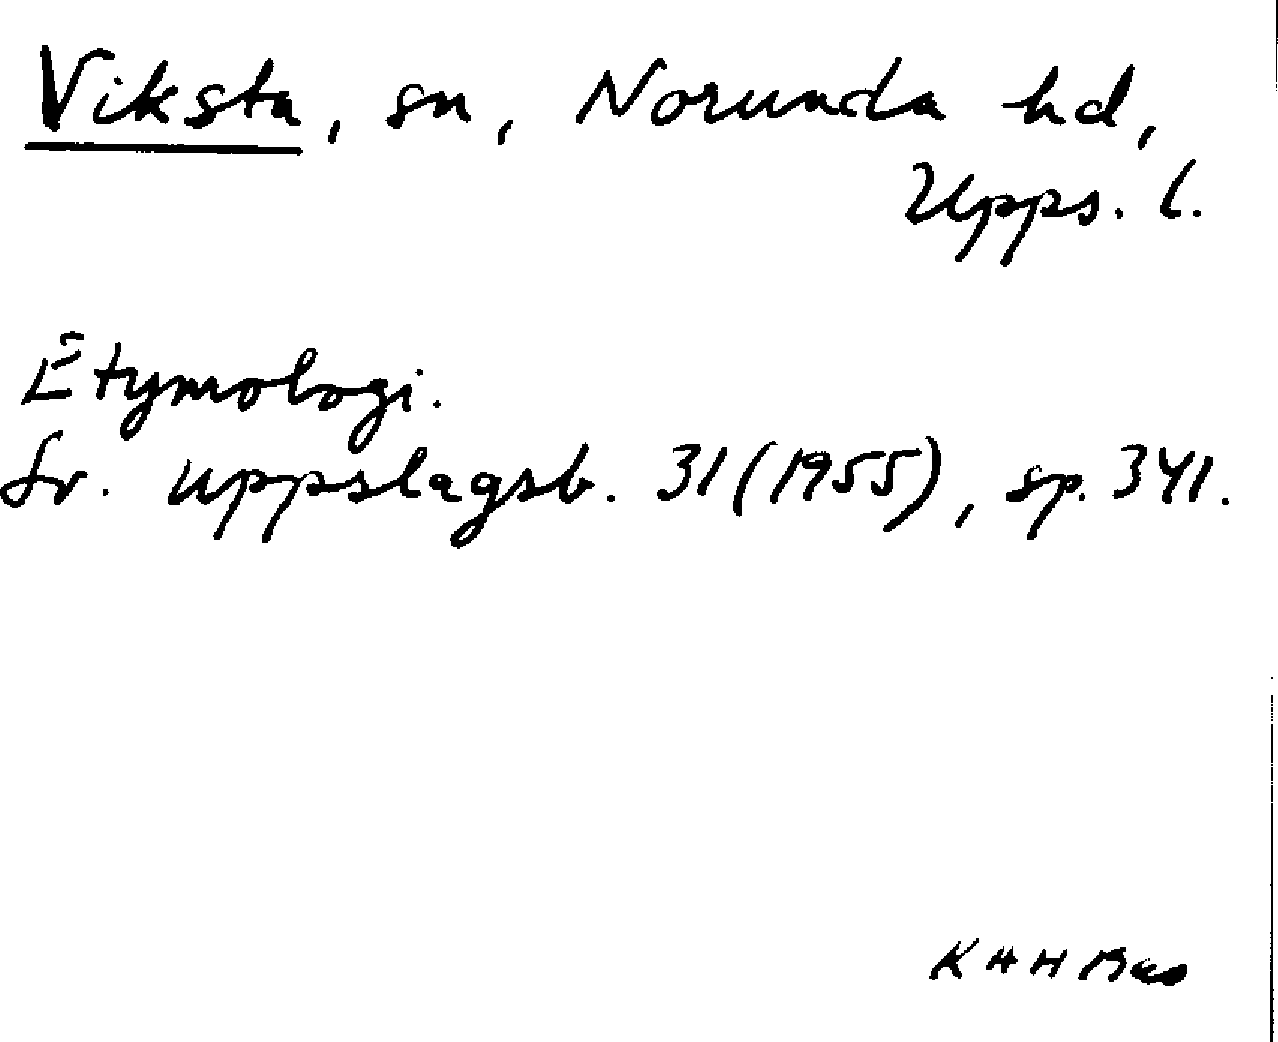 Viksta, sn, Norunda hd,
Upps. l.
Etymologi.
Sv. uppslagsb. 31 (1955), sp. 341.
KHH